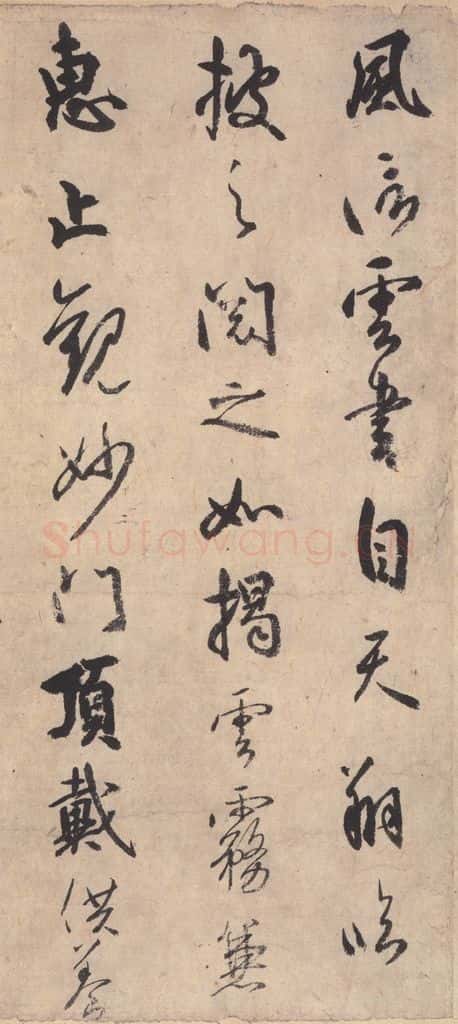 風信雲書自天翔臨
披之閱之如揭雲霧兼
惠止觀妙門頂戴供養
Shufawang.cn